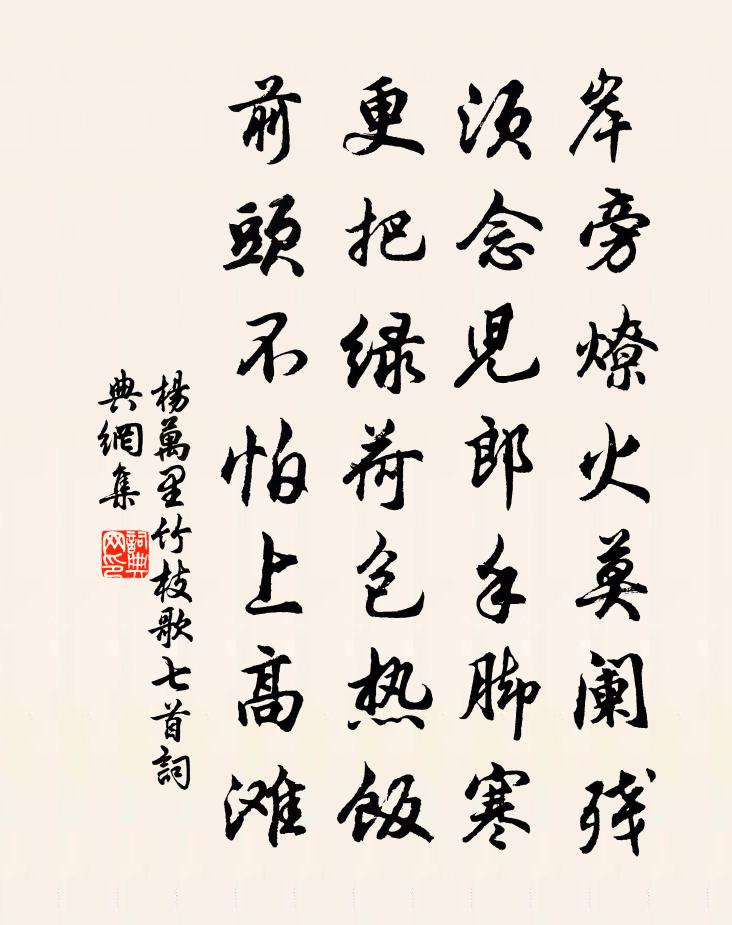 岸旁燎火莫阑残
须念児郎手脚寒
更把绿荷包热饭
前頭不怕上高滩
楊萬里竹枝歌七首詞
典網集
詞典网印